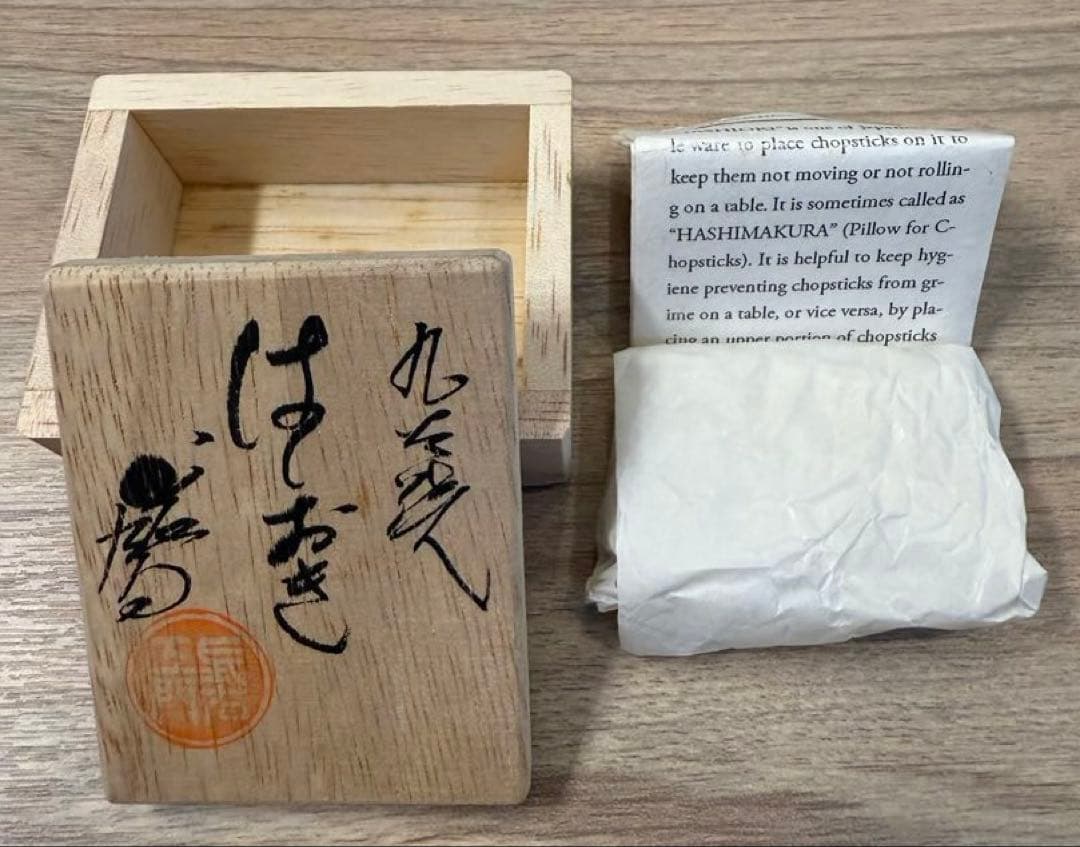 九谷焼
はしおき
le ware to place chopsticks on it to
keep them not moving or not rollin-
g on a table. It is sometimes called as
“HASHIMAKURA” (Pillow for C-
hopsticks). It is helpful to keep hyg-
iene preventing chopsticks from gr-
ime on a table, or vice versa, by pla-
cing an upper portion of chopsticks